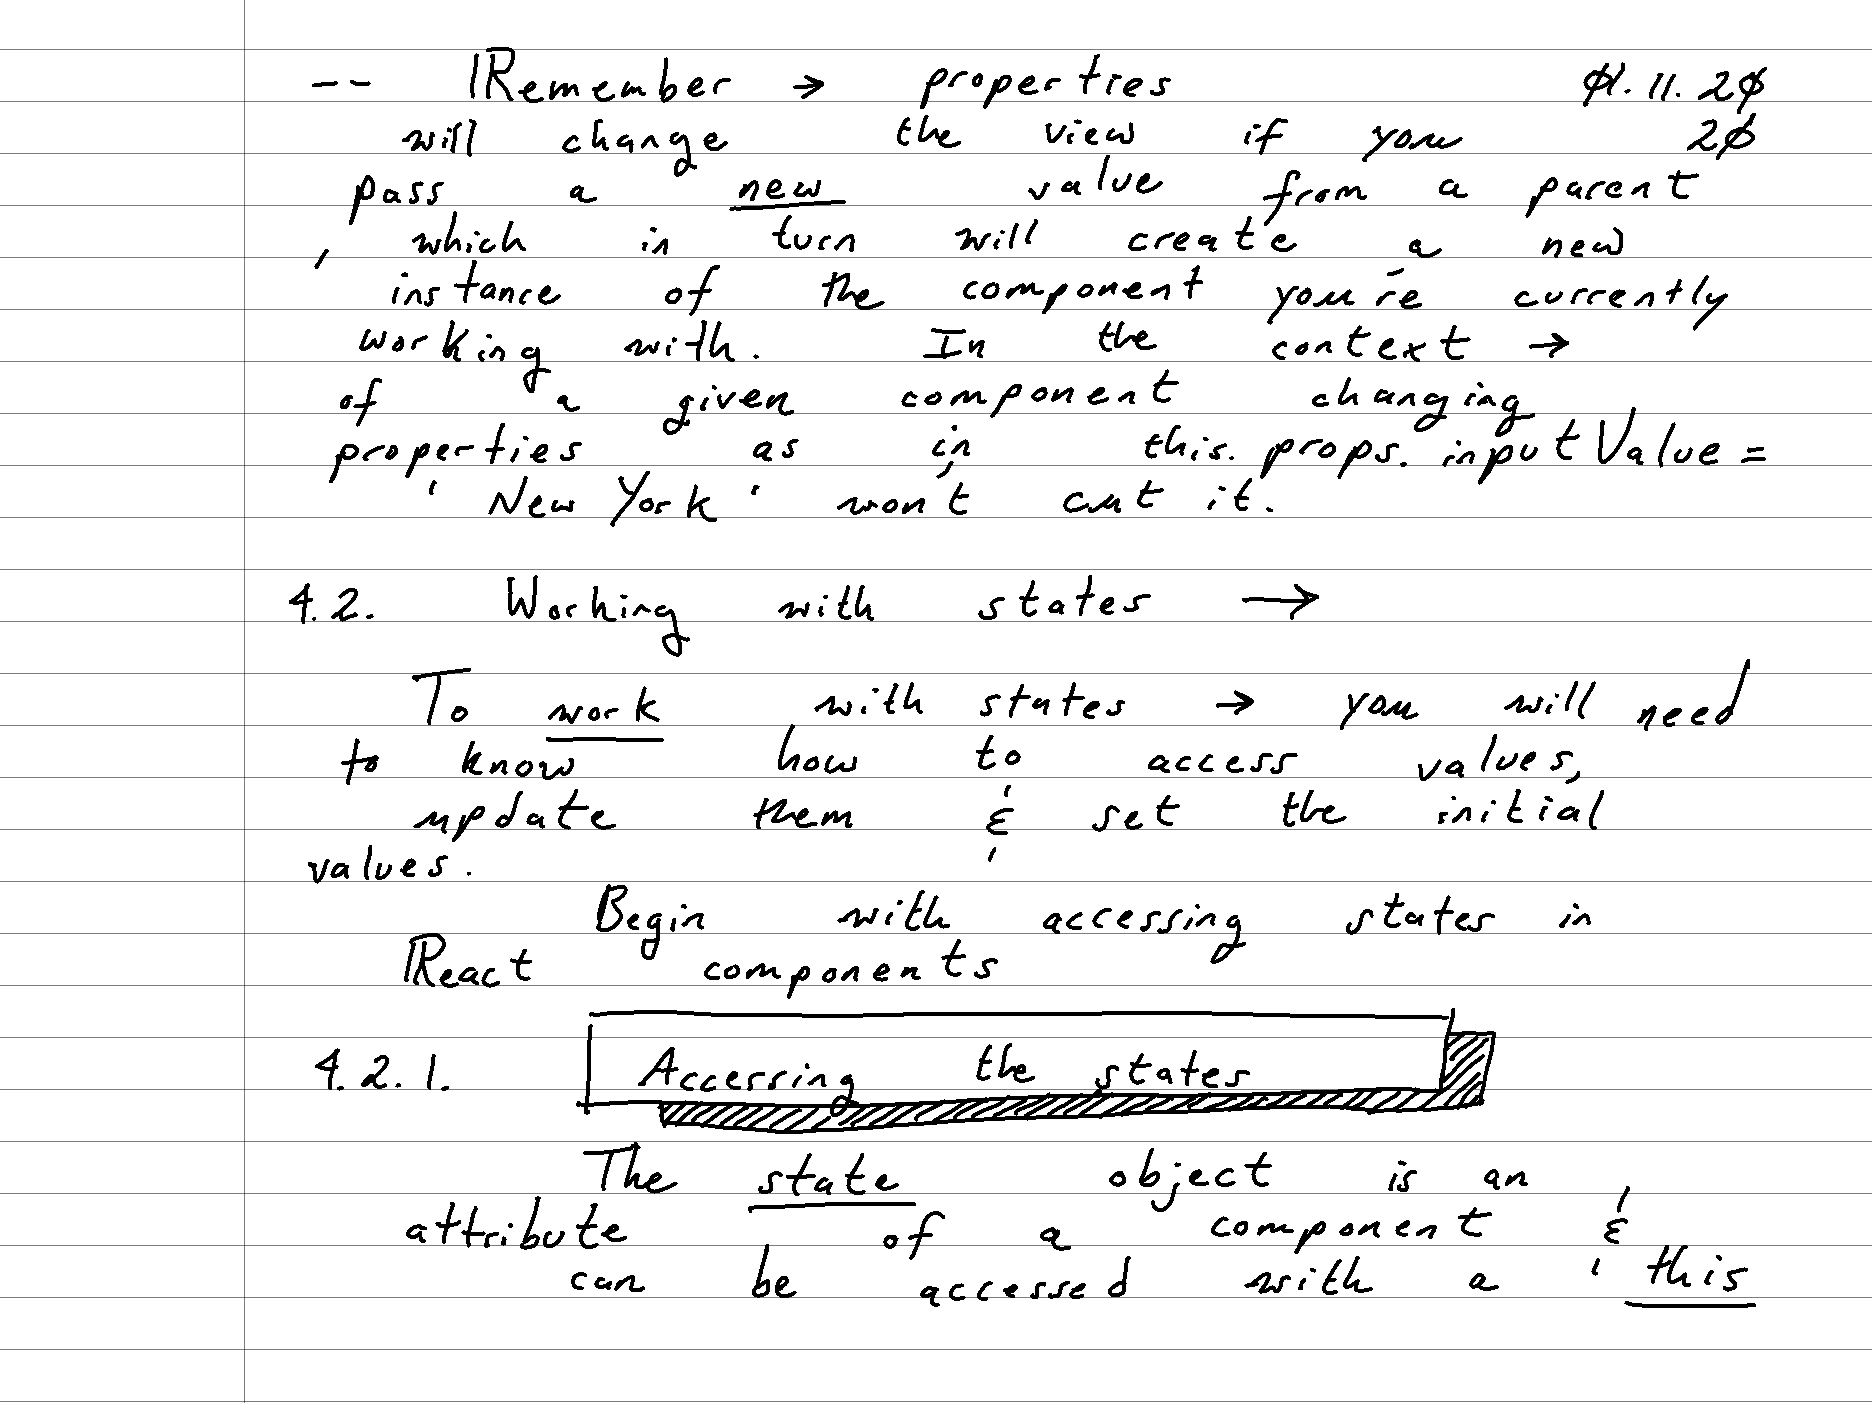 -- Remember → properties 01.11.20
will change the view if you 20
pass a new value from a parent
, which in turn will create a new
instance of the component you're currently
working with. In the context →
of a given component changing
properties as in this.props.inputValue =
'New York' won't cut it.
4.2. Working with states →
To work with states → you will need
to know how to access values,
update them & set the initial
values.
Begin with accessing states in
React components
4.2.1. Accessing the states
The state object is an
attribute of a component &
can be accessed with a 'this